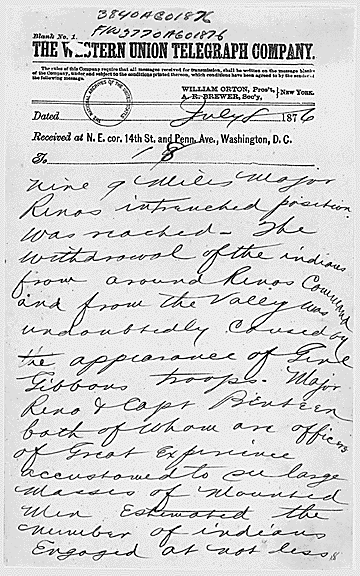 3840AGO1876
F/W3770AGO1876
Blank No. 1.
THE WESTERN UNION TELEGRAPH COMPANY.
The rules of this Company require that all messages received for transmission, shall be written on the message blanks
of the Company, under and subject to the conditions printed thereon, which conditions have been agreed to by the sender of
WILLIAM ORTON, Pres't,
A. R. BREWER, Sec'y,
NEW YORK.
Dated July 8 1876
Received at N. E. cor. 14th St. and Penn. Ave., Washington, D. C.
To 8
nine of Miles Major
Renos intrenched position
was reached - The
withdrawal of the indians
from around Renos Command
and from the Valley was
undoubtedly Caused by
the appearance of Genl
Gibbons troops. Major
Reno & Capt Benteen
both of Whom are officers
of Great Experience
accustomed to see large
Masses of Mounted
Men Estimated the
number of indians
Engaged at not less